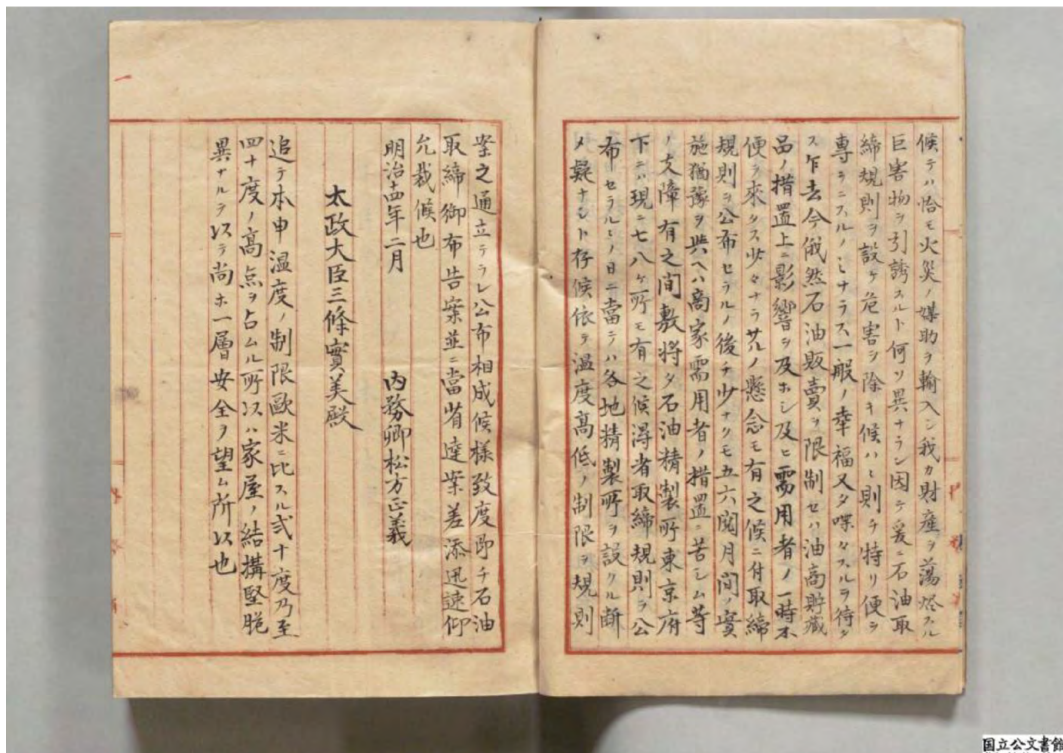 候テハ恰モ火災ノ媒助ヲ輸入シ我カ財産ヲ蕩燼スル
巨害物ヲ引誘スルト何ソ異ナラン因テ爰ニ石油取
締規則ヲ設ケ危害ヲ除キ候ハヽ則チ特リ便ヲ
専ラニスルノミナラス一般ノ幸福又タ喋々スルヲ待タ
ス乍去今俄然石油販賣ヲ限制セハ油商貯蔵
品ノ措置上ニ影響ヲ及ホシ及ヒ需用者ノ一時不
便ヲ來タス少々ナラサルノ懸念モ有之候ニ付取締
規則ヲ公布セラルノ後チ少ナクモ五六閲月間ノ實
施猶豫ヲ與ヘハ商家需用者ノ措置ニ苦シム等
ノ支障有之間敷将タ石油精製所東京府
下ニハ現ニ七八ケ所モ有之候得者取締規則ヲ公
布セラルヽノ日ニ當テハ各地精製所ヲ設クル断
メ疑ナシト存候依テ温度高低ノ制限ヲ規則
案之通立テラレ公布相成候様致度即チ石油
取締御布告案並ニ當省達案差添迅速仰
允裁候也
明治十四年二月 内務卿松方正義
太政大臣三條實美殿
追テ本申温度ノ制限歐米ニ比スル弐十度乃至
四十度ノ高点ヲ占ムル所以ハ家屋ノ結構堅脆
異ナルヲ以テ尚ホ一層安全ヲ望ム所以也
一
国立公文書館